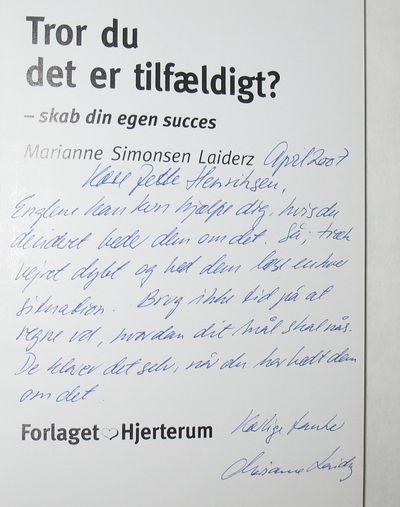 Tror du
det er tilfældigt?
– skab din egen succes
Marianne Simonsen Laiderz April 2007
Kære Jette Henriksen,
Englene kan kun hjælpe dig, hvis du
direkte beder dem om det. Så, træk
vejret dybt og bed dem løse enhver
situation. Brug ikke tid på at
regne ud, hvordan dit mål skal nås.
De klarer det selv, når du har bedt dem
om det.
Forlaget Hjerterum Kærlige tanker
Marianne Laiderz